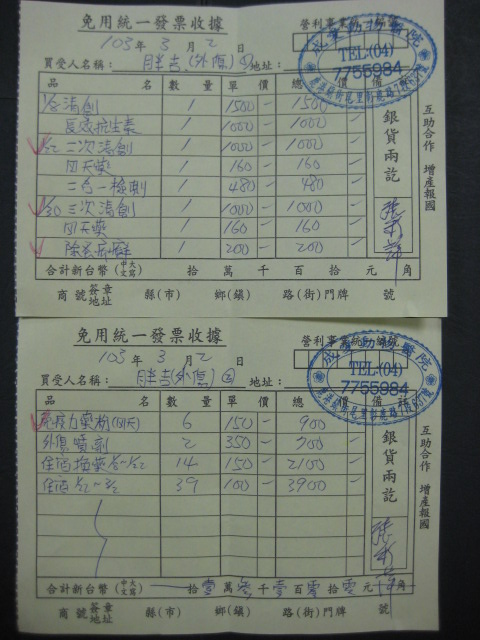 免用統一發票收據
103年 3 月 2 日
營利事業統一編號
買受人名稱: 胖吉(外傷)① 地址:
成軍動物醫院
TEL:(04)
7755984
品 名 數 量 單 價 總 價 備 註
1/8 清創 1 1500 - 1500 -
長效抗生素 1 1000 - 1000 -
1/22 二次清創 1 1000 - 1000 -
四天藥 1 160 - 160 -
二合一檢測 1 480 - 480 -
1/30 三次清創 1 1000 - 1000 -
四天藥 1 160 - 160 -
1 200 - 200 -
銀貨兩訖
互助合作 增產報國
合計新台幣(中文大寫) 拾 萬 千 百 拾 元 角
商號簽章地址 縣(市) 鄉(鎮) 路(街)門牌 號
免用統一發票收據
103年 3 月 2 日
營利事業統一編號
買受人名稱: 胖吉(外傷)② 地址:
成軍動物醫院
TEL:(04)
7755984
品 名 數 量 單 價 總 價 備 註
免疫力藥物(四天) 6 150 - 900 -
外傷噴劑 2 350 - 700 -
住宿換藥 1/8~1/22 14 150 - 2100 -
住宿 1/22~3/2 39 100 - 3900 -
銀貨兩訖
互助合作 增產報國
合計新台幣(中文大寫) 拾壹萬參千壹百零拾零元 角
商號簽章地址 縣(市) 鄉(鎮) 路(街)門牌 號